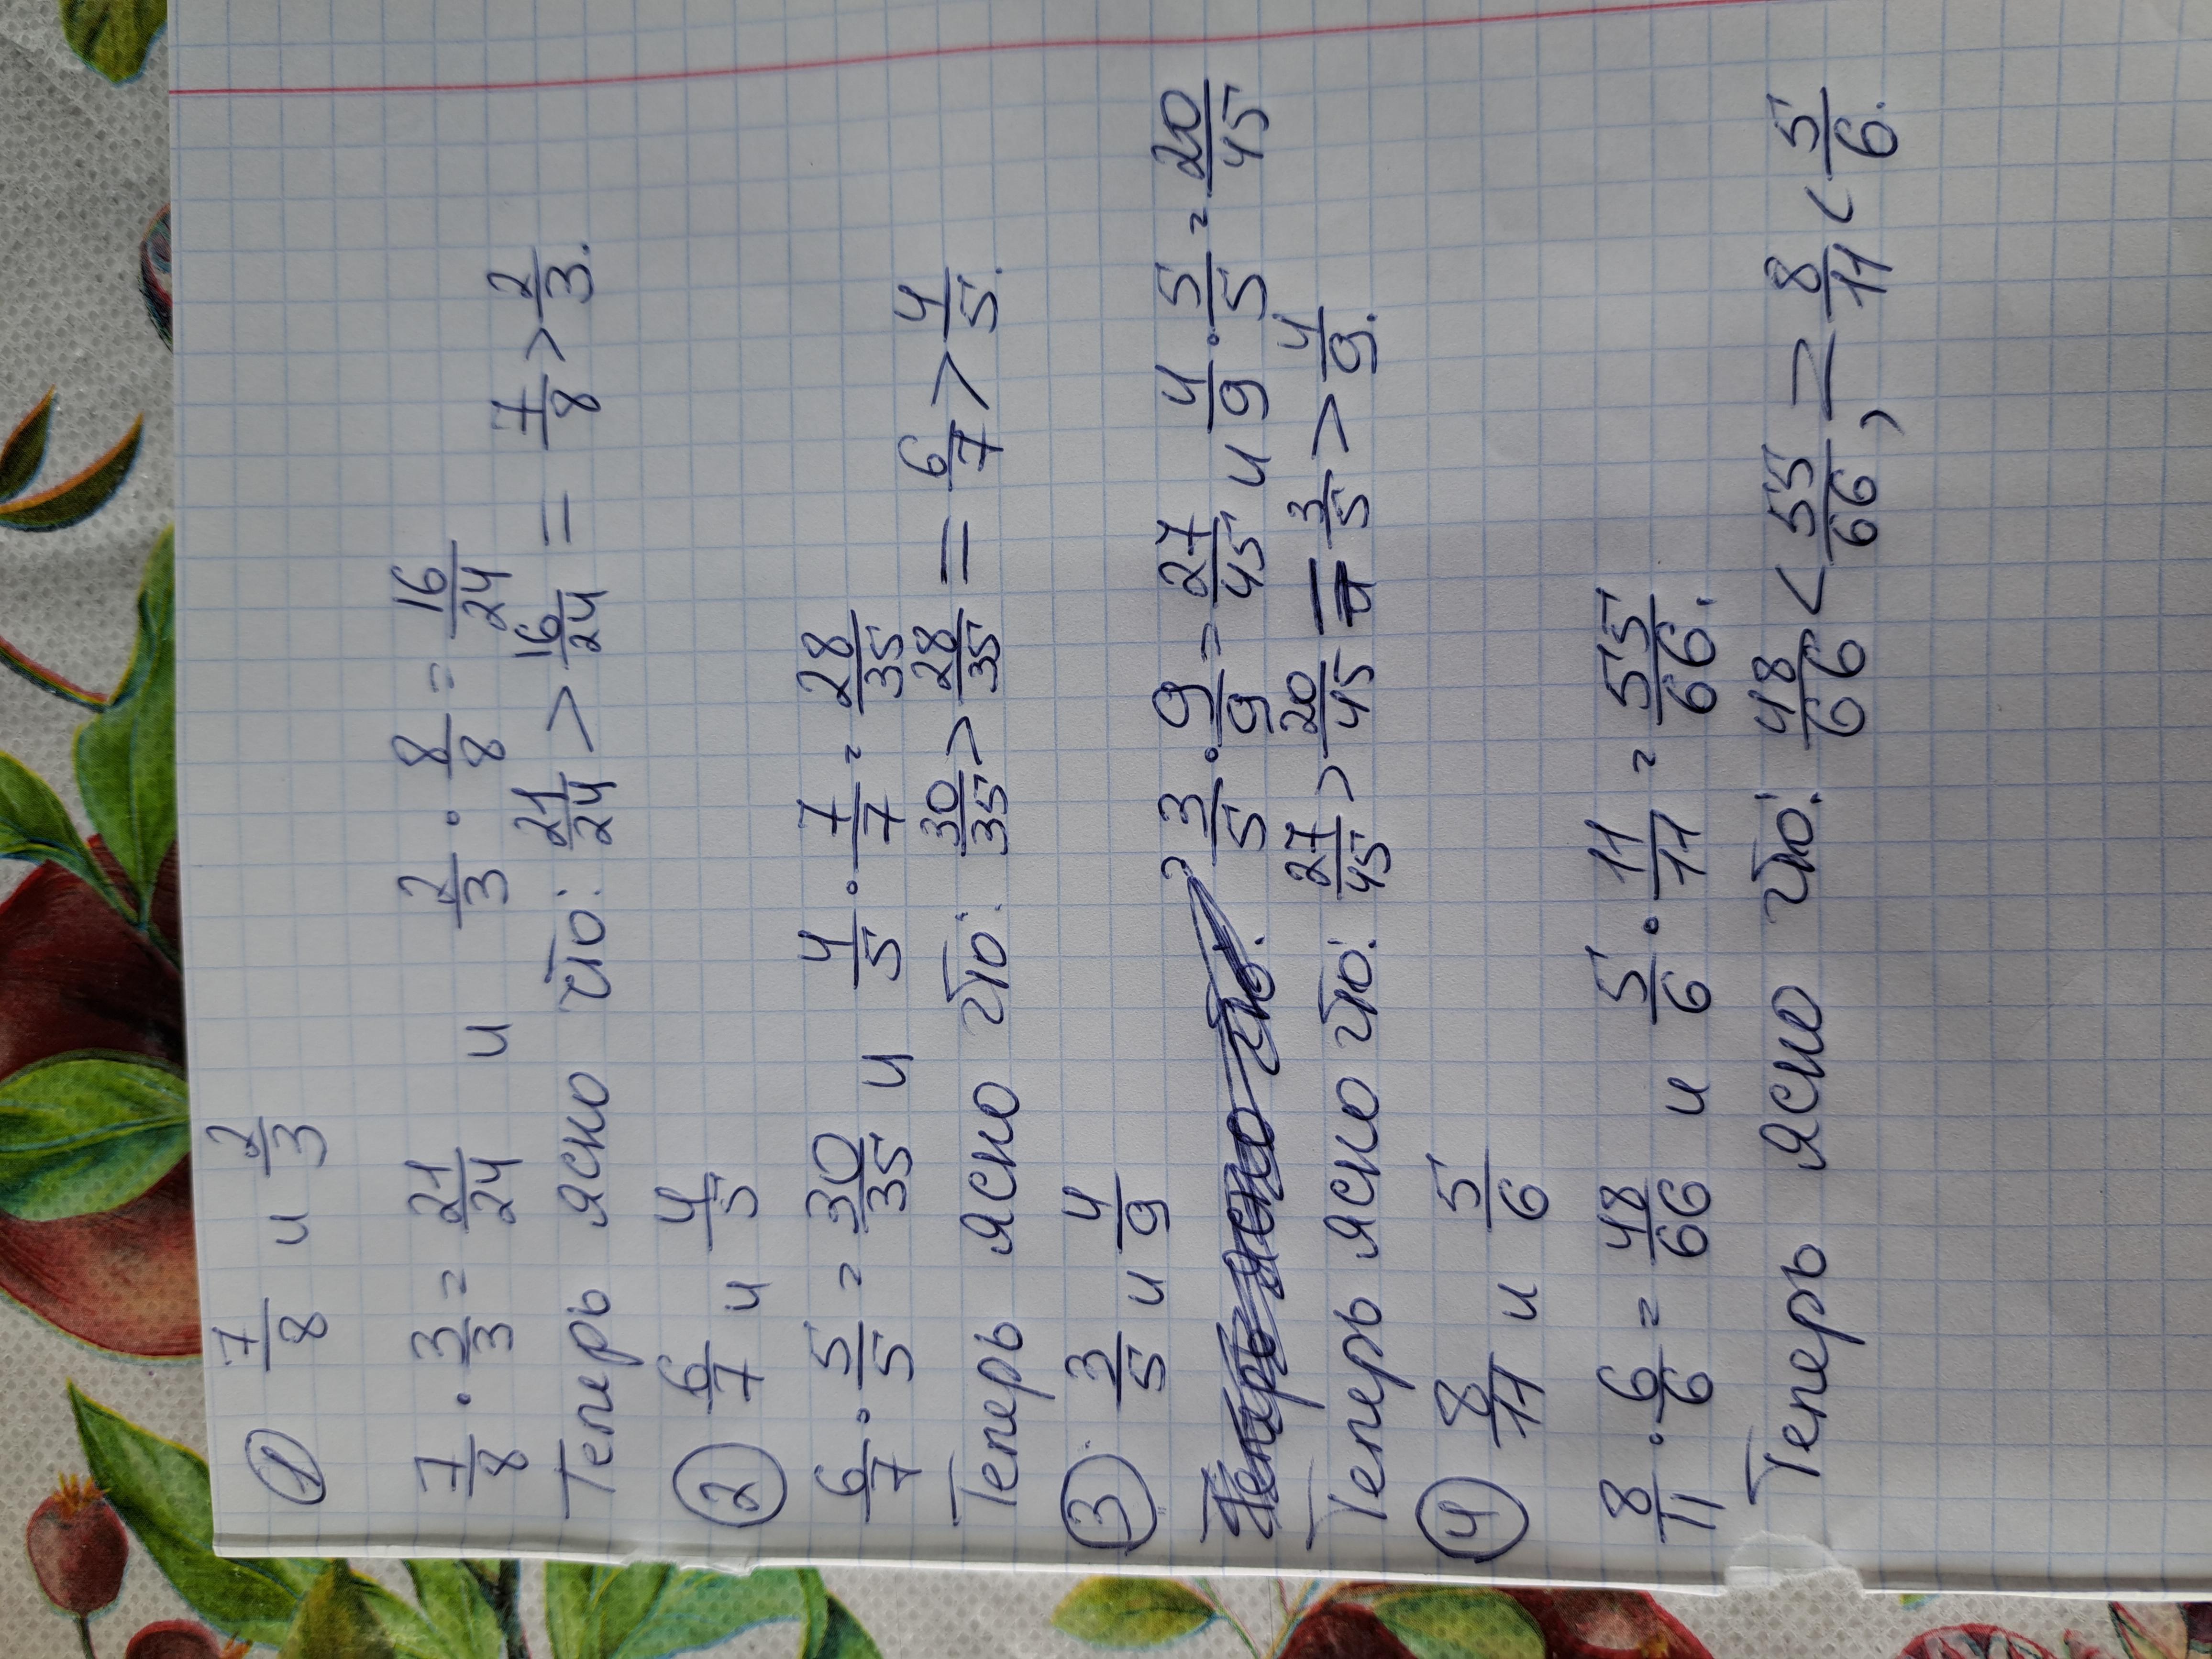 ① 7/8 и 2/3
7/8 · 3/3 = 21/24 и 2/3 · 8/8 = 16/24
Теперь ясно что: 21/24 > 16/24 = 7/8 > 2/3.
② 6/7 и 4/5
6/7 · 5/5 = 30/35 и 4/5 · 7/7 = 28/35
Теперь ясно что: 30/35 > 28/35 = 6/7 > 4/5.
③ 3/5 и 4/9
Теперь ясно что: 3/5 · 9/9 = 27/45 и 4/9 · 5/5 = 20/45
Теперь ясно что: 27/45 > 20/45 = 3/5 > 4/9.
④ 8/11 и 5/6
8/11 · 6/6 = 48/66 и 5/6 · 11/11 = 55/66.
Теперь ясно что: 48/66 < 55/66, = 8/11 < 5/6.